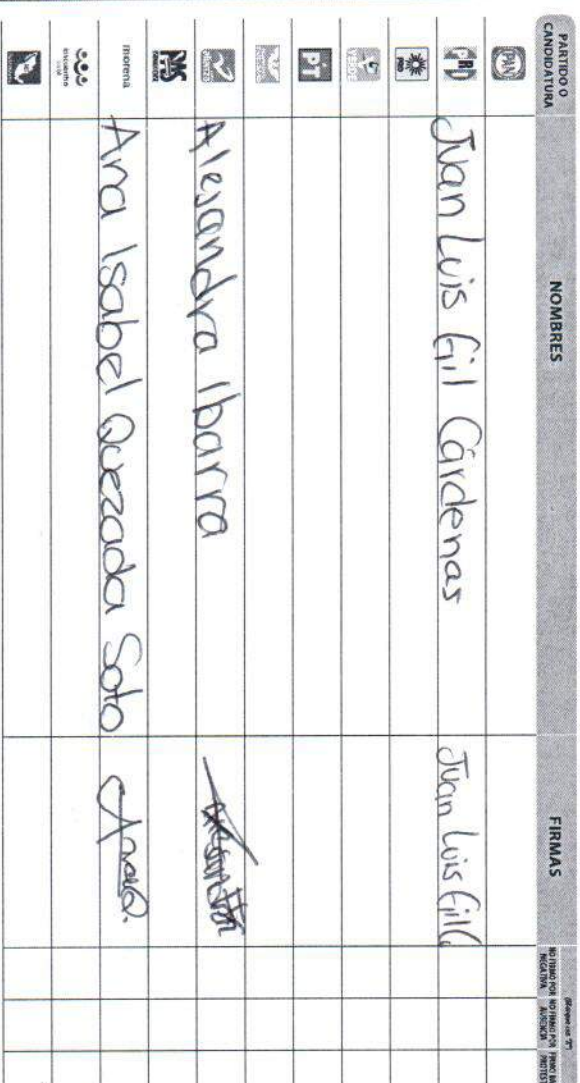 PARTIDO O CANDIDATURA NOMBRES FIRMAS (Marque con "X") NO FIRMÓ POR NEGATIVA NO FIRMÓ POR AUSENCIA FIRMÓ BAJO
PAN
PRI Juan Luis Gil Cárdenas Juan Luis Gil C
PRD
VERDE
PT
alianza Alesandra Ibarra
morena Ana Isabel Quezada Soto
encuentro